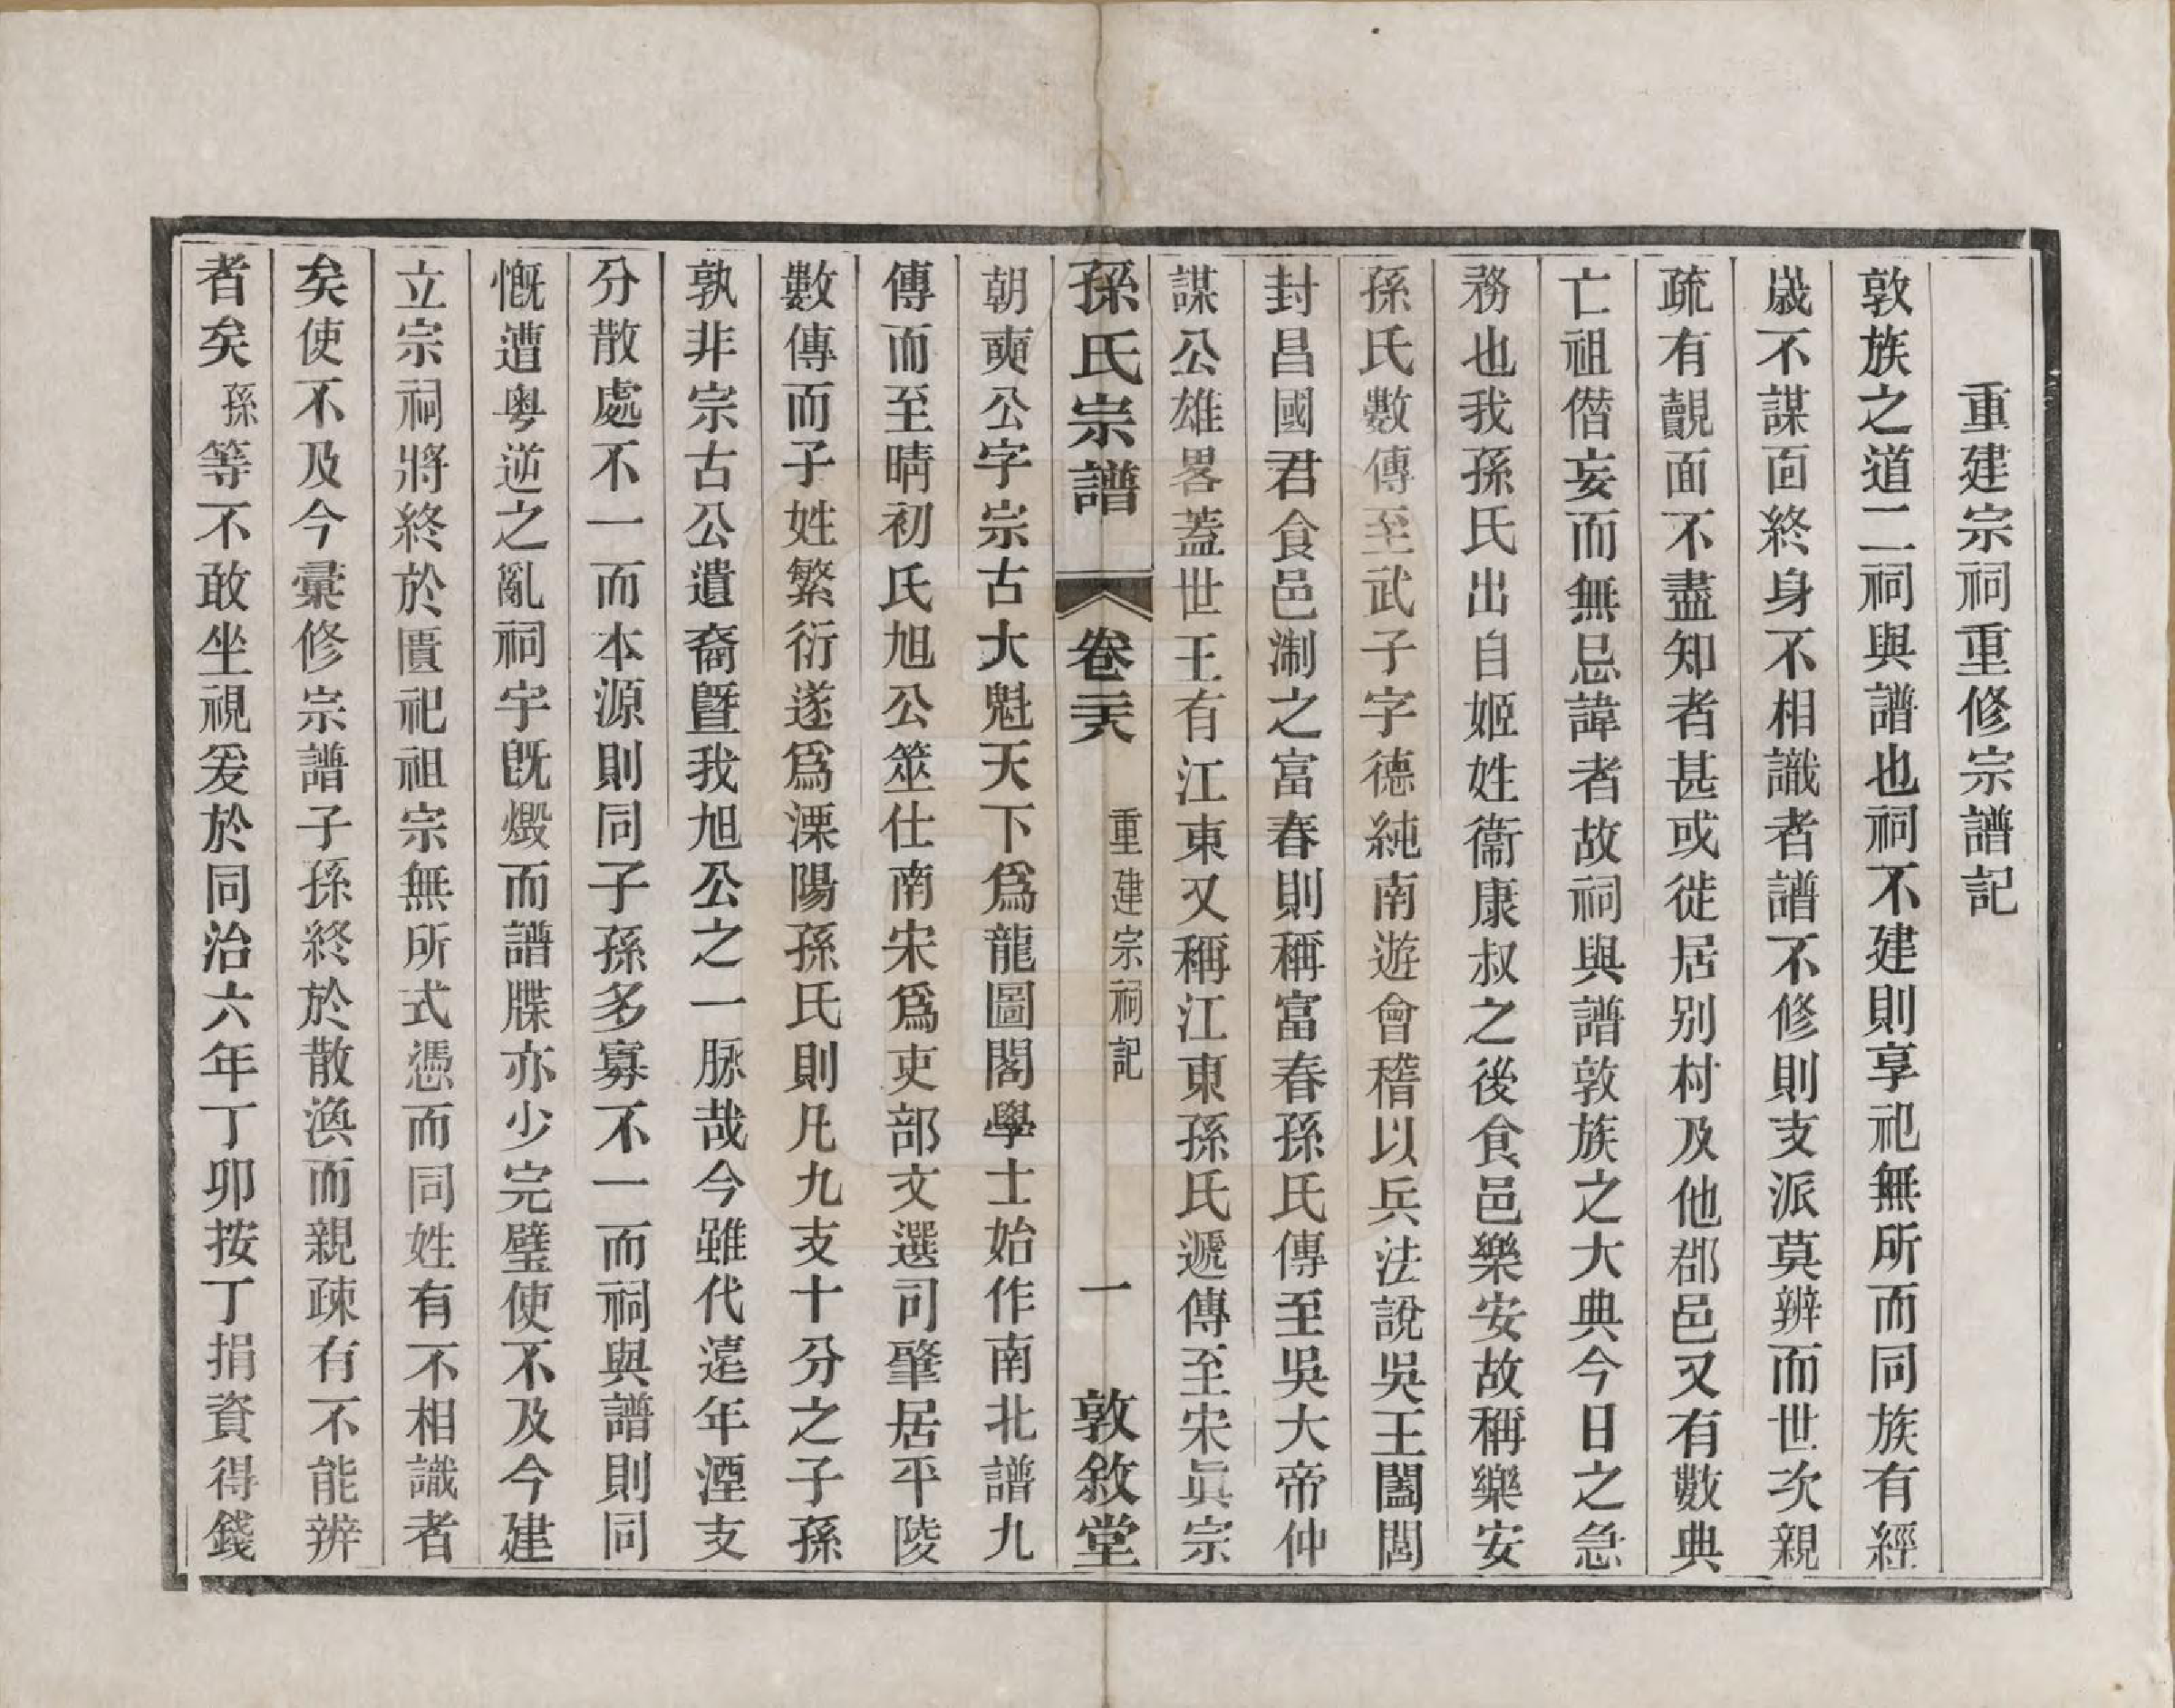 重建宗祠重修宗譜記
敦族之道二祠與譜也祠不建則享祀無所而同族有經
歲不謀面終身不相識者譜不修則支派莫辨而世次親
疏有覿面不盡知者甚或徙居別村及他郡邑又有數典
亡祖僭妄而無忌諱者故祠與譜敦族之大典今日之急
務也我孫氏出自姬姓衞康叔之後食邑樂安故稱樂安
孫氏數傳至武子字德純南遊會稽以兵法說吳王闔閭
封昌國君食邑淛之富春則稱富春孫氏傳至吳大帝仲
謀公雄畧蓋世王有江東又稱江東孫氏遞傳至宋眞宗
孫氏宗譜 卷二十六 重建宗祠記 一 敦敘堂
朝奭公字宗古大魁天下爲龍圖閣學士始作南北譜九
傳而至晴初氏旭公筮仕南宋爲吏部文選司肇居平陵
數傳而子姓繁衍遂爲溧陽孫氏則凡九支十分之子孫
孰非宗古公遺裔曁我旭公之一脉哉今雖代遠年湮支
分散處不一而本源則同子孫多寡不一而祠與譜則同
慨遭粤逆之亂祠宇旣燬而譜牒亦少完璧使不及今建
立宗祠將終於匱祀祖宗無所式憑而同姓有不相識者
矣使不及今彙修宗譜子孫終於散渙而親疎有不能辨
者矣孫等不敢坐視爰於同治六年丁卯按丁捐資得錢